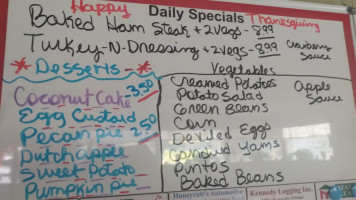 Happy
Daily Specials Thanksgiving
Baked Ham Steak + 2 Vegs - 8.99
Turkey-N-Dressing + 2 Vegs - 8.99 Cranberry Sauce
* Desserts - *
Vegetables
Coconut Cake 3.50
Egg Custard
Pecan pie 2.50
Dutch apple
Sweet Potato
Pumpkin pie
Creamed Potatoes
Apple Sauce
Potato Salad
Green Beans
Corn
Deviled Eggs
Candied Yams
Pintos
Baked Beans
Huneycutt's Automotive
Kennedy Logging Inc.